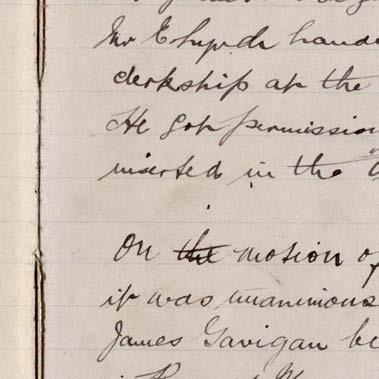 Mr
clerkship at the
He got permission
inserted in the
On the motion of
it was unanimous
James Gavigan be